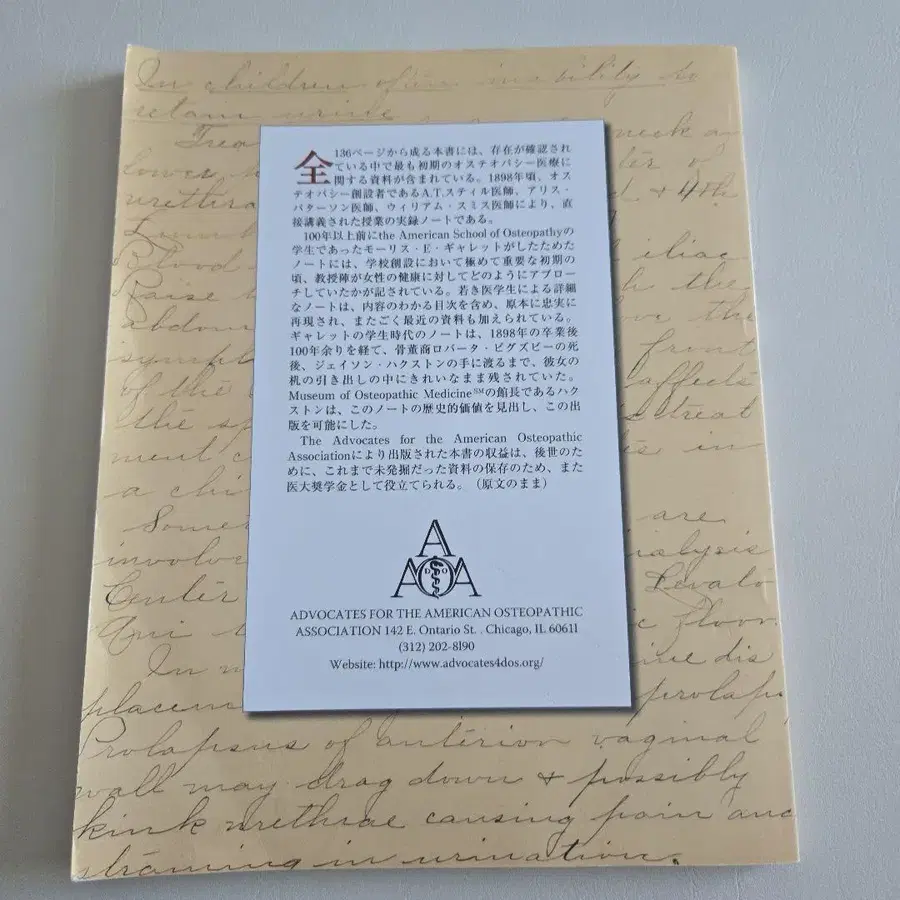 In children often inability to
retain urine
全136ページから成る本書には、存在が確認され
ている中で最も初期のオステオパシー医療に
関する資料が含まれている。1898年頃、オス
テオパシー創設者であるA.T.スティル医師、アリス・
パターソン医師、ウィリアム・スミス医師により、直
接講義された授業の実録ノートである。
100年以上前にthe American School of Osteopathyの
学生であったモーリス・E・ギャレットがしたためた
ノートには、学校創設において極めて重要な初期の
頃、教授陣が女性の健康に対してどのようにアプロー
チしていたかが記されている。若き医学生による詳細
なノートは、内容のわかる目次を含め、原本に忠実に
再現され、またごく最近の資料も加えられている。
ギャレットの学生時代のノートは、1898年の卒業後
100年余りを経て、骨董商ロバータ・ビグズビーの死
後、ジェイソン・ハクストンの手に渡るまで、彼女の
机の引き出しの中にきれいなまま残されていた。
Museum of Osteopathic Medicine℠の館長であるハク
ストンは、このノートの歴史的価値を見出し、この出
版を可能にした。
The Advocates for the American Osteopathic
Associationにより出版された本書の収益は、後世のた
めに、これまで未発掘だった資料の保存のため、また
医大奨学金として役立てられる。（原文のまま）
A
AOA
DO
ADVOCATES FOR THE AMERICAN OSTEOPATHIC
ASSOCIATION 142 E. Ontario St. . Chicago, IL 60611
(312) 202-8190
Website: http://www.advocates4dos.org/
+ 4th
iliac
Blood
Raise the
abdom the
front
of the affects
the sp treat
ment c in
a chi
are
involve
Center Levato
floor.
In dis
placem prolaps
Prolapsus of anterior vaginal
wall may drag down + possibly
kink urethrae causing pain and
straining in urination.